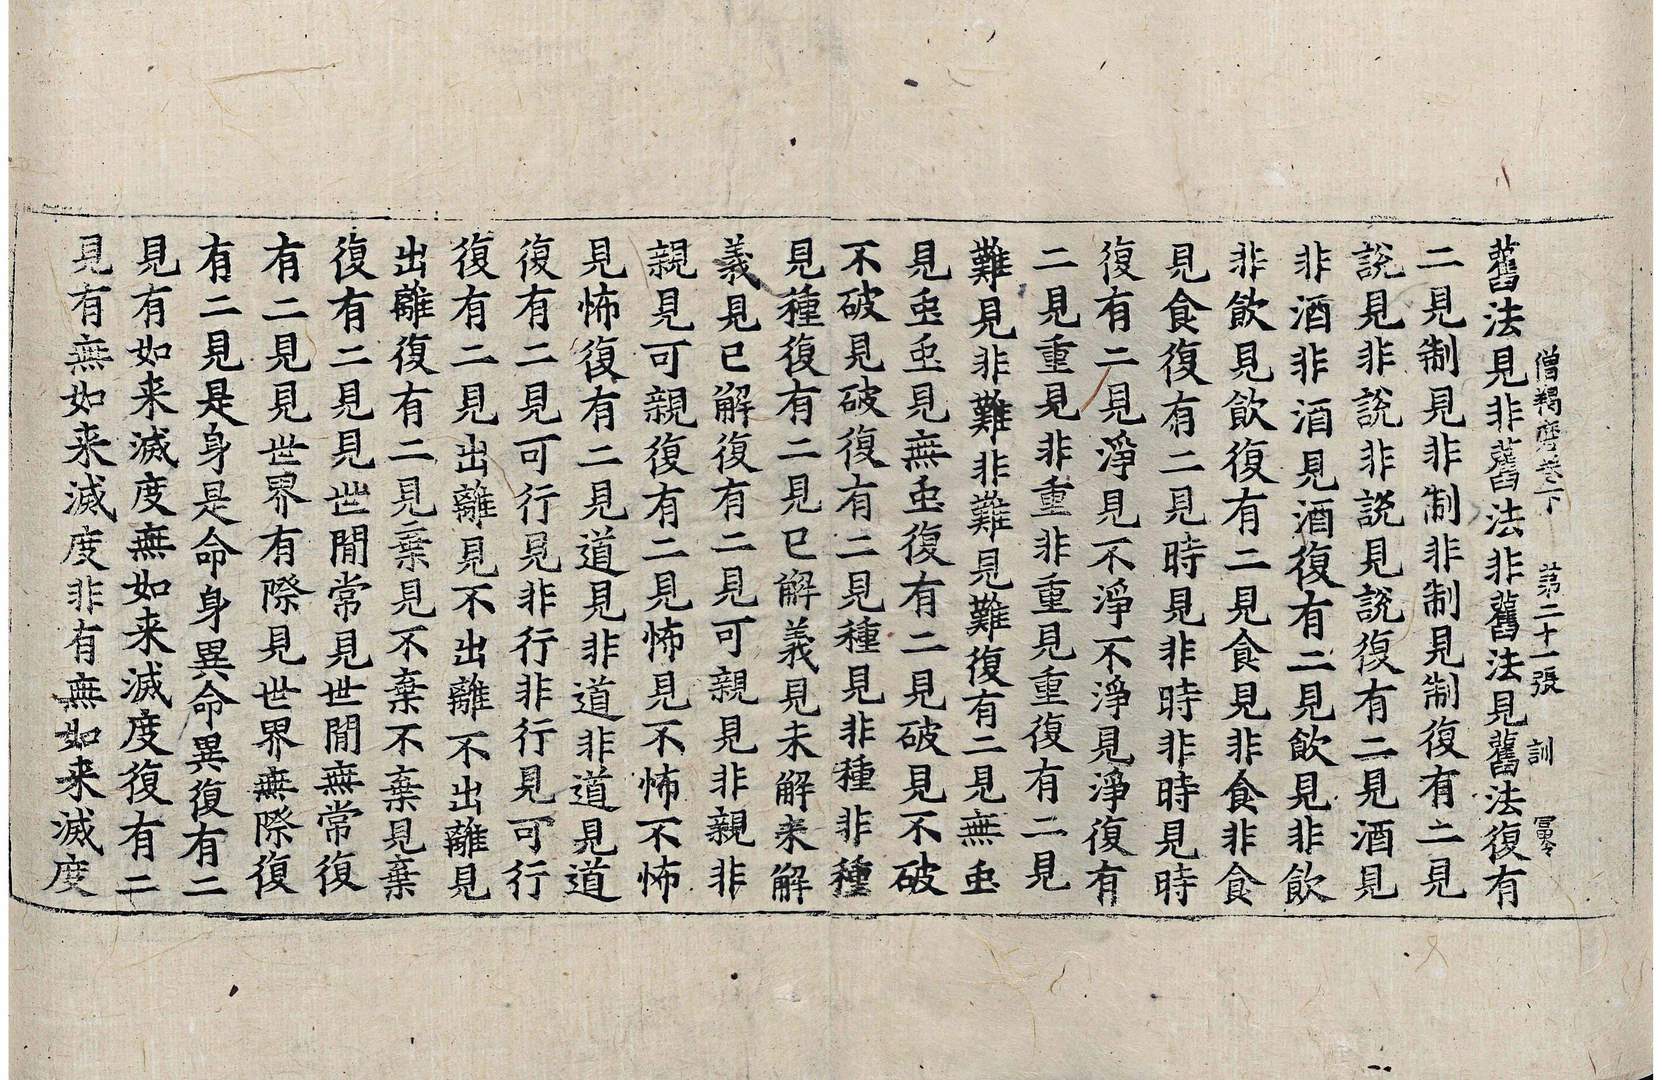 僧羯磨卷下 第二十一張 訓 冥
舊法見非舊法非舊法見舊法復有
二見制見非制非制見制復有二見
說見非說非說見說復有二見酒見
非酒非酒見酒復有二見飲見非飲
非飲見飲復有二見食見非食非食
見食復有二見時見非時非時見時
復有二見淨見不淨不淨見淨復有
二見重見非重非重見重復有二見
難見非難非難見難復有二見無虫
見虫虫見無虫復有二見破見不破
不破見破復有二見種見非種非種
見種復有二見已解義見未解未解
義見已解復有二見可親見非親非
親見可親復有二見怖見不怖不怖
見怖復有二見道見非道非道見道
復有二見可行見非行非行見可行
復有二見出離見不出離不出離見
出離復有二見棄見不棄不棄見棄
復有二見見世間常見世間無常復
有二見見世界有際見世界無際復
有二見是身是命身異命異復有二
見有如来滅度無如来滅度復有二
見有無如来滅度非有無如来滅度